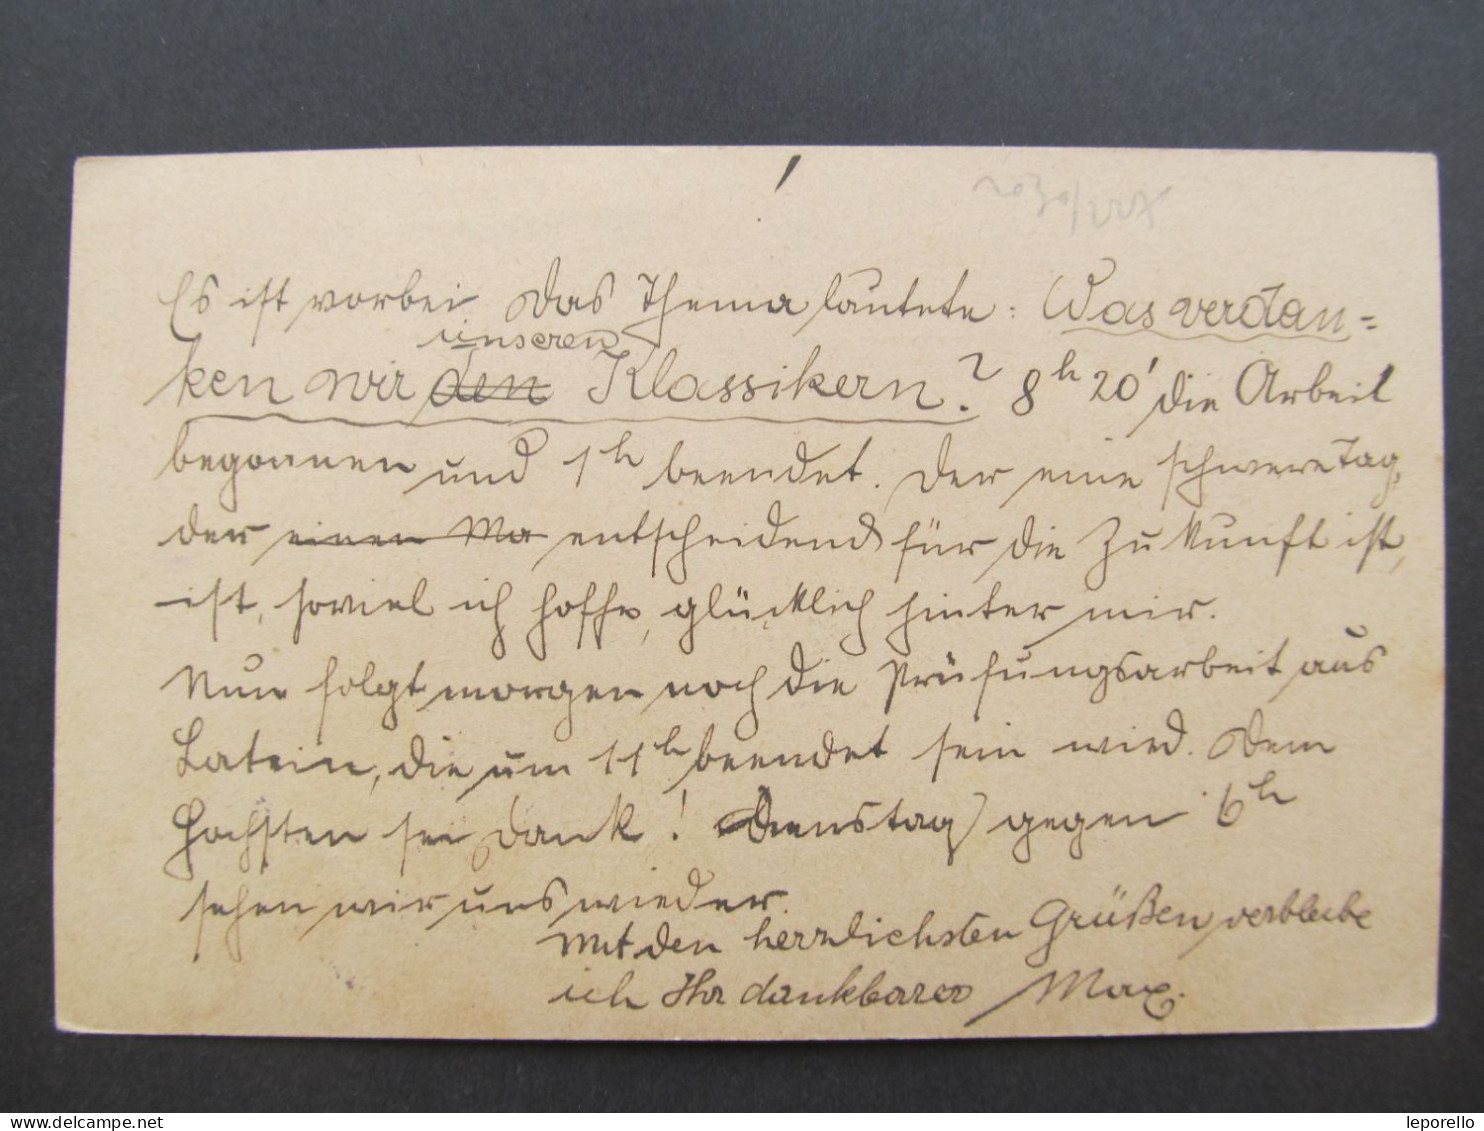 Es ist vorbei. Das Thema lautete: Was verdan=
unseren
ken wir den Klassikern? 8h 20' die Arbeit
begonnen und 1h beendet. Der eine schwere Tag,
der einen Ma entscheidend für die Zukunft ist,
ist, soviel ich hoffe, glücklich hinter mir.
Nun folgt morgen noch die Prüfungsarbeit aus
Latein, die um 11h beendet sein wird. Dem
Höchsten sei Dank! Dienstag gegen 6h
sehen wir uns wieder.
Mit den herzlichsten Grüßen verbleibe
ich Ihr dankbarer Max.
leporello